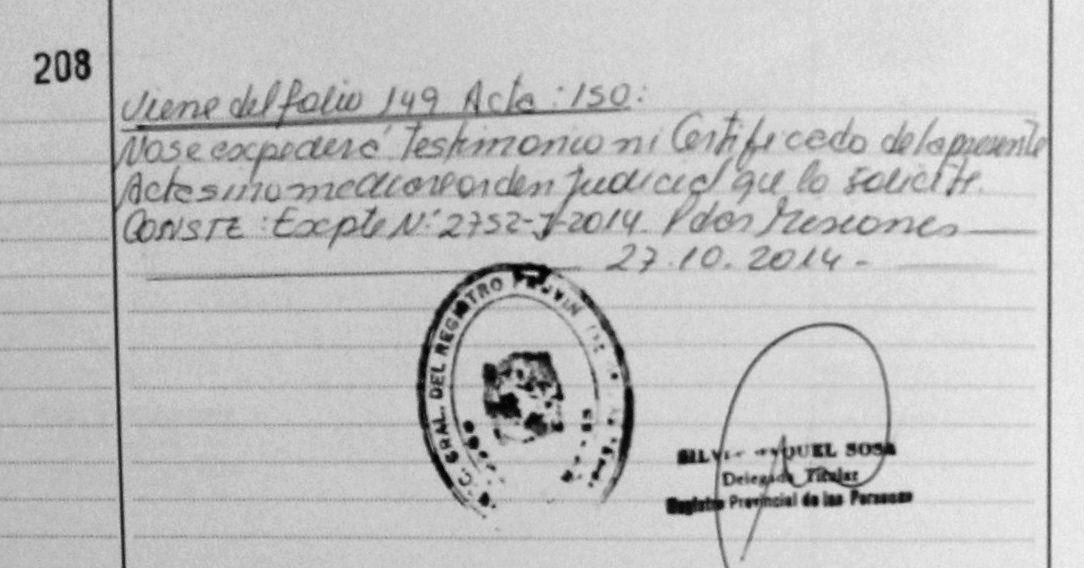 208
Viene del folio 149 Acta: 150:
No se expederá Testimonio ni Certificado de la presente
Acta sino mediare orden Judicial que lo solicite.
CONSTE: Expte N: 2752-J-2014 Pdos Misiones
27.10.2014-
GRAL. DEL REGISTRO
SOSA
Delegada Titular
Registro Provincial de las Personas